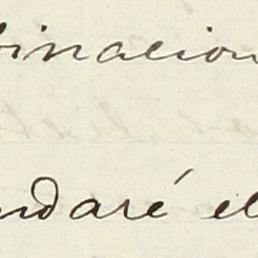 binacion
ndaré el